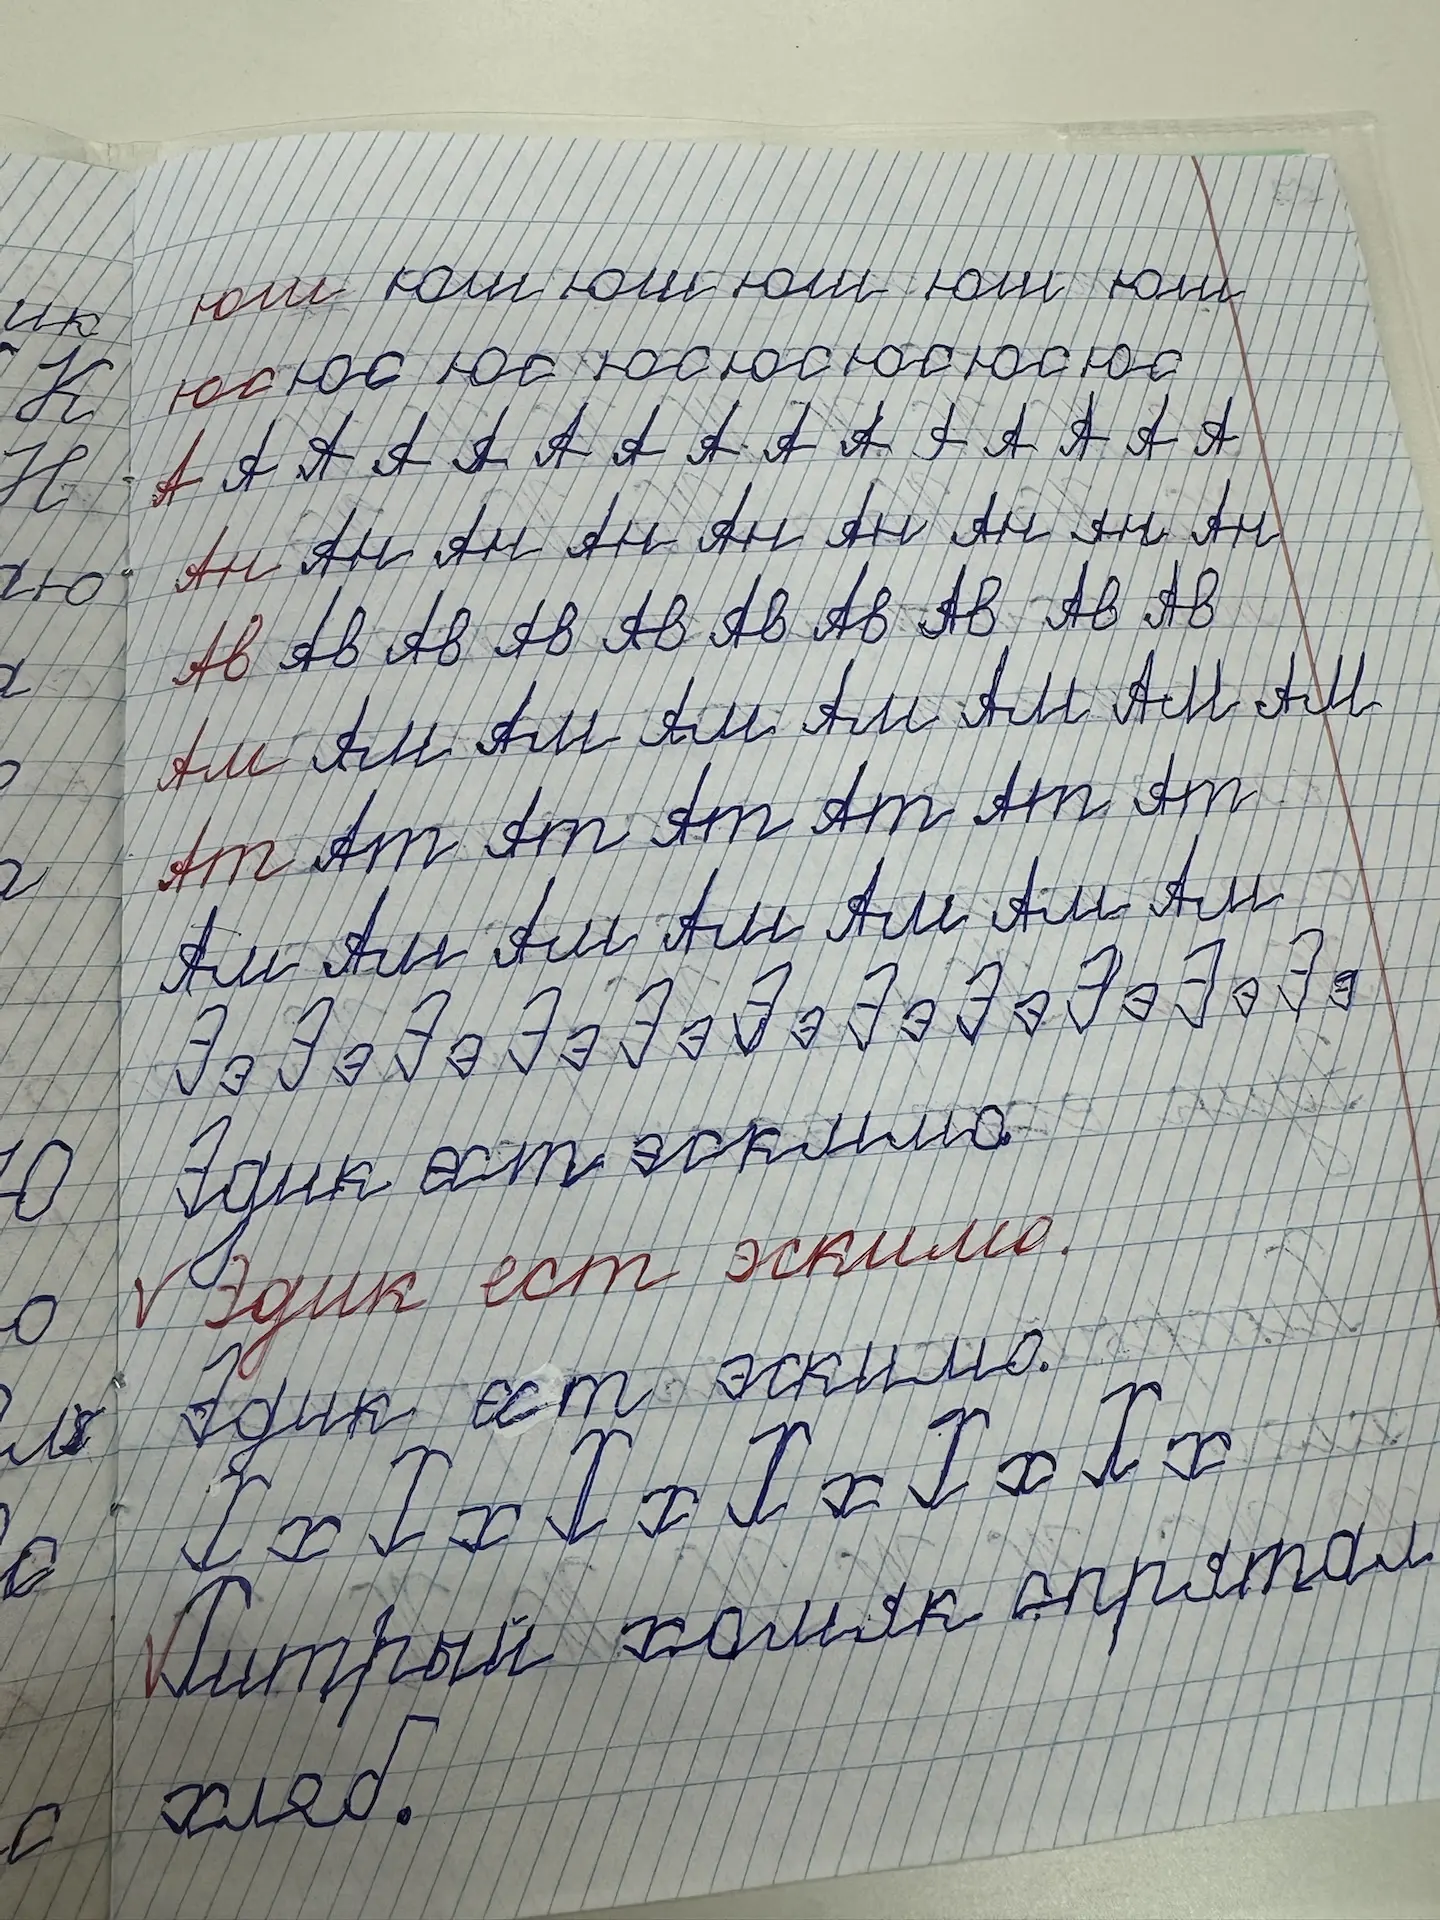 юш юш юш юш юш юш
юс юс юс юс юс юс юс юс
А А А А А А А А А А А А А А А
Ан Ан Ан Ан Ан Ан Ан Ан Ан
Ав Ав Ав Ав Ав Ав Ав Ав Ав
Ам Ам Ам Ам Ам Ам Ам Ам
Ат Ат Ат Ат Ат Ат Ат
Ам Ам Ам Ам Ам Ам Ам
Э э Э э Э э Э э Э э Э э Э э Э э Э э Э э Э э
Эдик ест эскимо.
Эдик ест эскимо.
Эдик ест эскимо.
Х х Х х Х х Х х Х х Х х
Хитрый хомяк спрятал
хлеб.